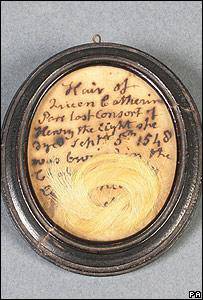 Hair of
Queen Catherine
Parr last Consort of
Henry the Eight she
dyed Septr 5th 1548
was in the
PA